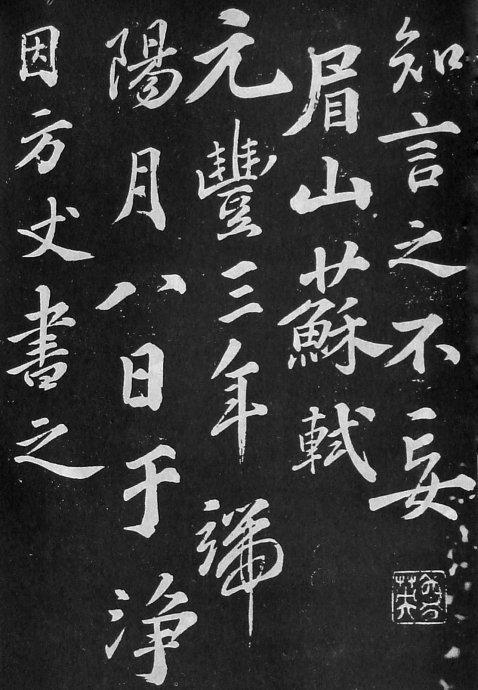 知言之不妄
眉山蘇軾
元豐三年端
陽月八日于淨
因方丈書之